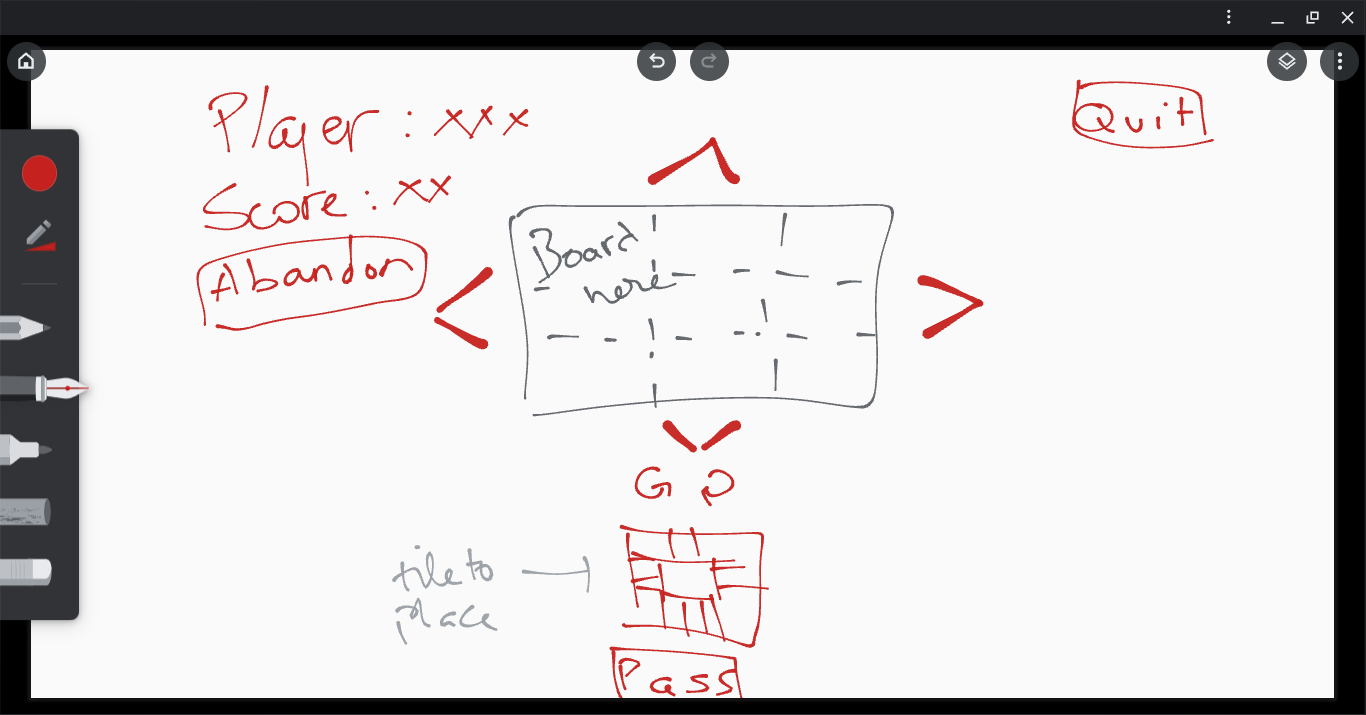 Player : xxx
Quit
Score : xx
Abandon
Board
here
tile to
place
Pass